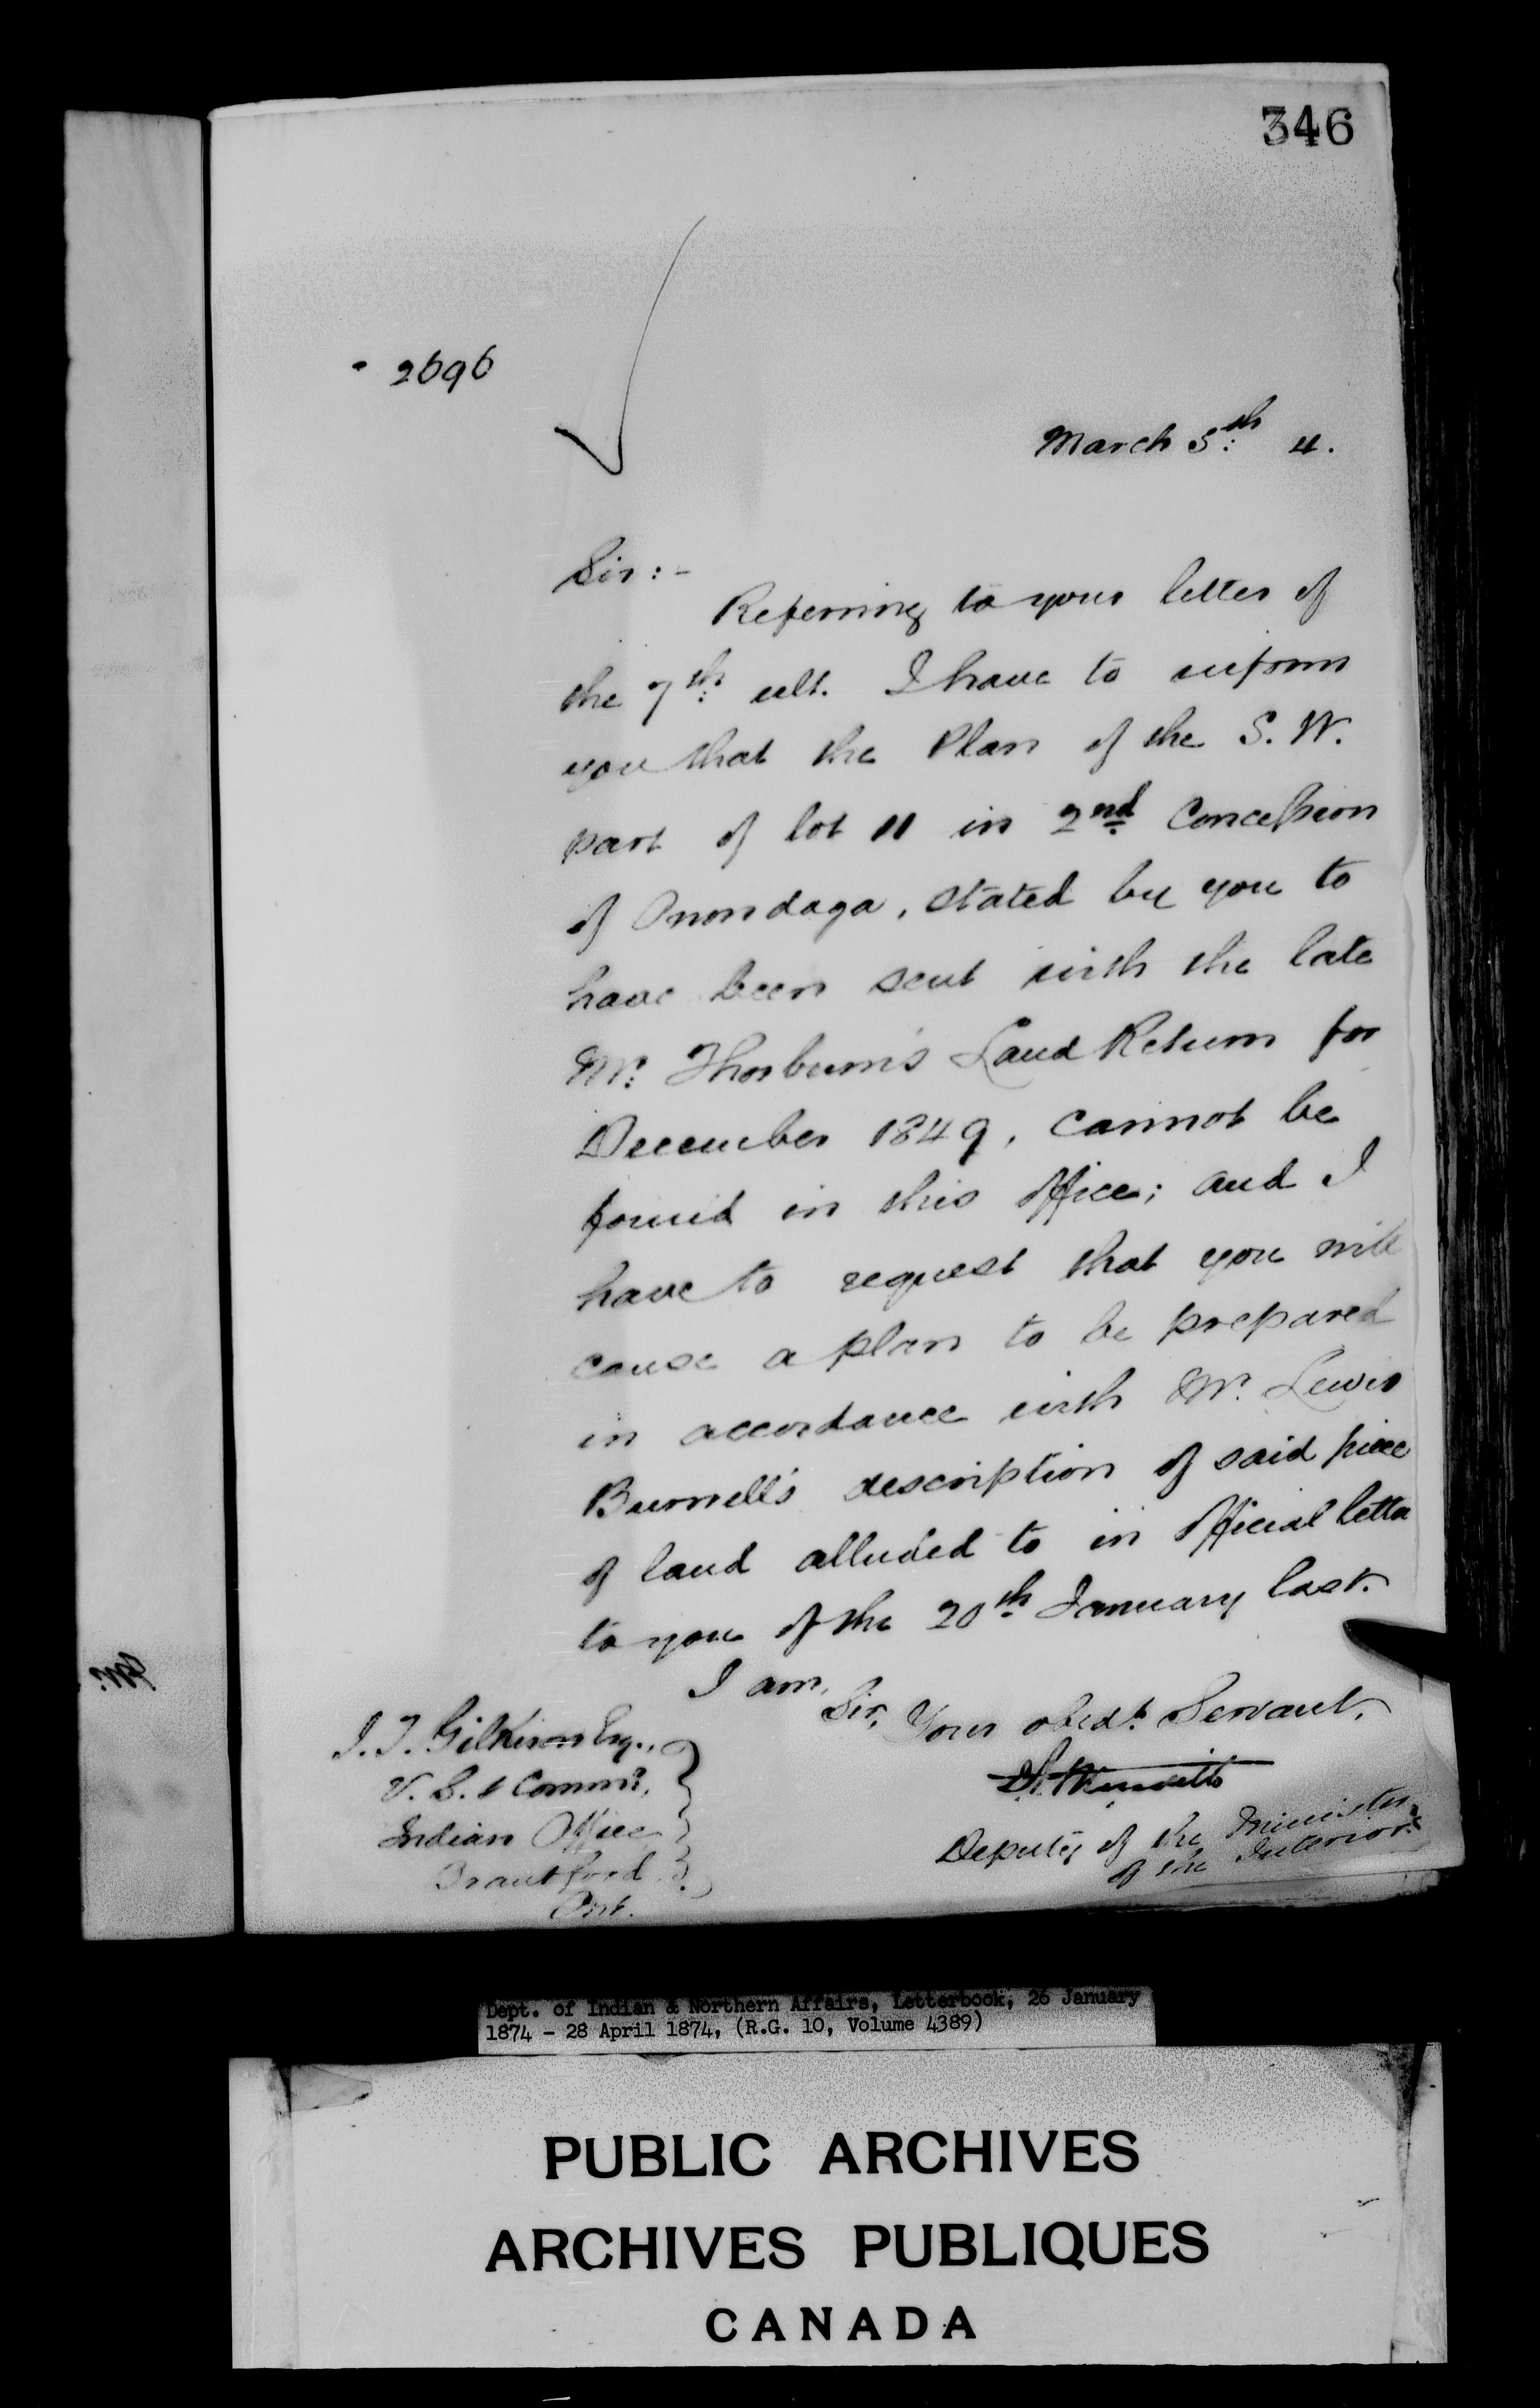 346
2696
March 5th 4.
Sir:-
Referring to your letter of
the 7th ult. I have to inform
you that the Plan of the S. W.
part of lot 11 in 2nd Concession
of Onondaga, stated by you to
have been sent with the late
Mr. Thorburn's Land Return for
December 1849, cannot be
found in this office; and I
have to request that you will
cause a plan to be prepared
in accordance with Mr. Lewis
Burwell's description of said piece
of land alluded to in official letter
to you of the 20th January last.
I am,
Sir, Your obedt. Servant,
Deputy of the Minister
of the Interior.
J. T. Gilkison Esq.,
V. S. & Commr.,
Indian Office
Brantford
Ont.
Dept. of Indian & Northern Affairs, Letterbook, 26 January
1874 - 28 April 1874, (R.G. 10, Volume 4389)
PUBLIC ARCHIVES
ARCHIVES PUBLIQUES
CANADA